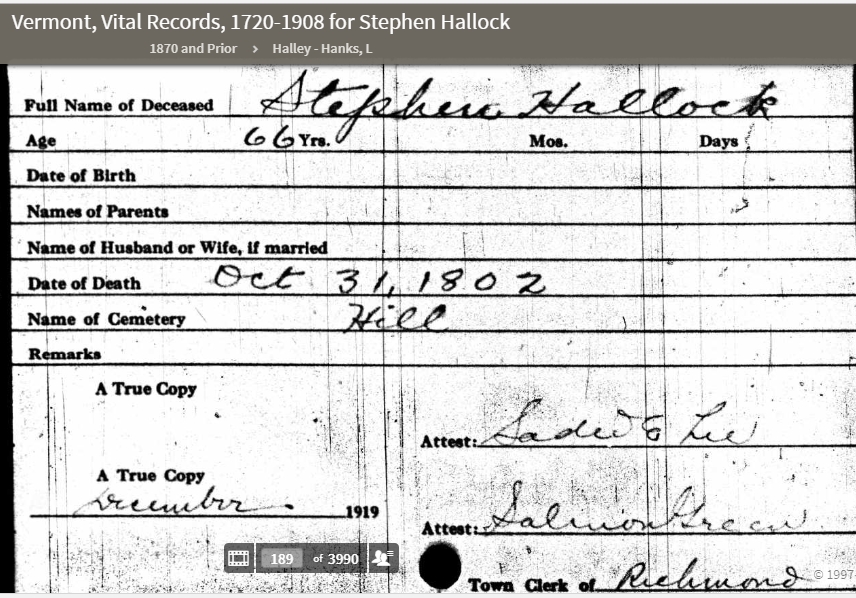 Vermont, Vital Records, 1720-1908 for Stephen Hallock
1870 and Prior > Halley - Hanks, L
Full Name of Deceased Stephen Hallock
Age 66 Yrs. Mos. Days
Date of Birth
Names of Parents
Name of Husband or Wife, if married
Date of Death Oct 31, 1802
Name of Cemetery Hill
Remarks
A True Copy
Attest: Sadie E Lee
A True Copy
December 1919
Attest: Salmon Green
189 of 3990
Town Clerk of Richmond
© 1997